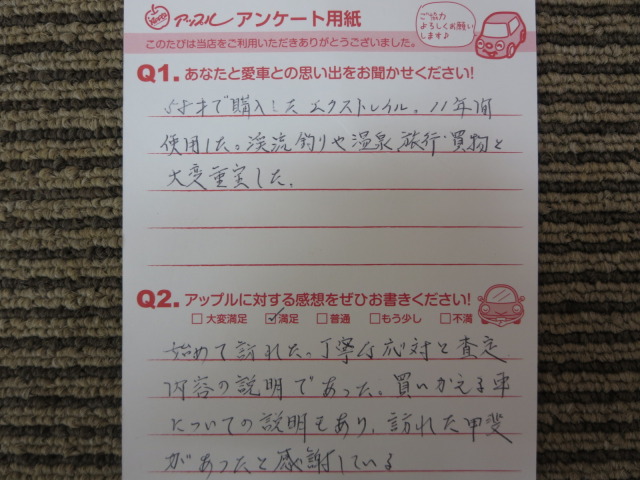 Apple アップル アンケート用紙
ご協力
よろしくお願い
します♪
このたびは当店をご利用いただきありがとうございました。
Q1. あなたと愛車との思い出をお聞かせください!
58才で購入したエクストレイル。11年間
使用した。渓流釣りや温泉、旅行・買物と
大変重宝した。
Q2. アップルに対する感想をぜひお書きください!
□大変満足 ☑満足 □普通 □もう少し □不満
始めて訪れた。丁寧な応対と査定
内容の説明であった。買いかえる車
についての説明もあり、訪れた甲斐
があったと感謝している